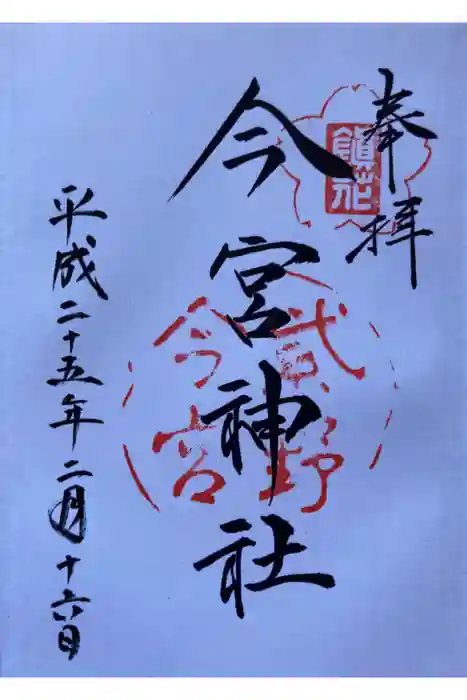 奉拝
鎮花
今宮神社
野
今宮
平成二十五年二月十六日